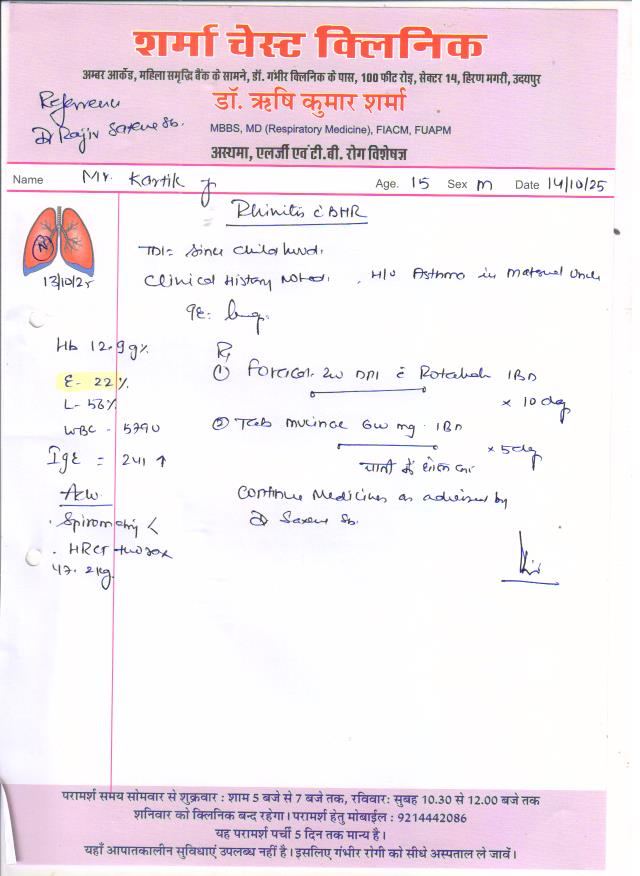 शर्मा चेस्ट क्लिनिक
अम्बर आर्केड, महिला समृद्धि बैंक के सामने, डॉ. गंभीर क्लिनिक के पास, 100 फीट रोड़, सेक्टर 14, हिरण मगरी, उदयपुर
डॉ. ऋषि कुमार शर्मा
MBBS, MD (Respiratory Medicine), FIACM, FUAPM
अस्थमा, एलर्जी एवं टी.बी. रोग विशेषज्ञ
Dr Rajiv Saxena Sb.
Name Mr. Kartik J Age. 15 Sex M Date 14/10/25
Rhinitis c̄ BHR
13/10/25
Since Childhood.
Clinical History Noted. H/O Asthma in Maternal Uncle
Hb 12.9 g%
E- 22%
L- 56%
WBC - 5790
IgE = 241 ↑
Adv
. Spirometry <
. HRCT thorax
47.2 kg.
Rx
① Foracort 200 DPI c̄ Rotahaler 1BD
x 10 day
② Tab Mucinac 600 mg. 1BD
x 5 day
पानी में घोल कर
Continue Medicines as advised by
Dr Saxena Sb.
परामर्श समय सोमवार से शुक्रवार : शाम 5 बजे से 7 बजे तक, रविवार: सुबह 10.30 से 12.00 बजे तक
शनिवार को क्लिनिक बन्द रहेगा। परामर्श हेतु मोबाईल : 9214442086
यह परामर्श पर्ची 5 दिन तक मान्य है।
यहाँ आपातकालीन सुविधाएं उपलब्ध नहीं है। इसलिए गंभीर रोगी को सीधे अस्पताल ले जावें।